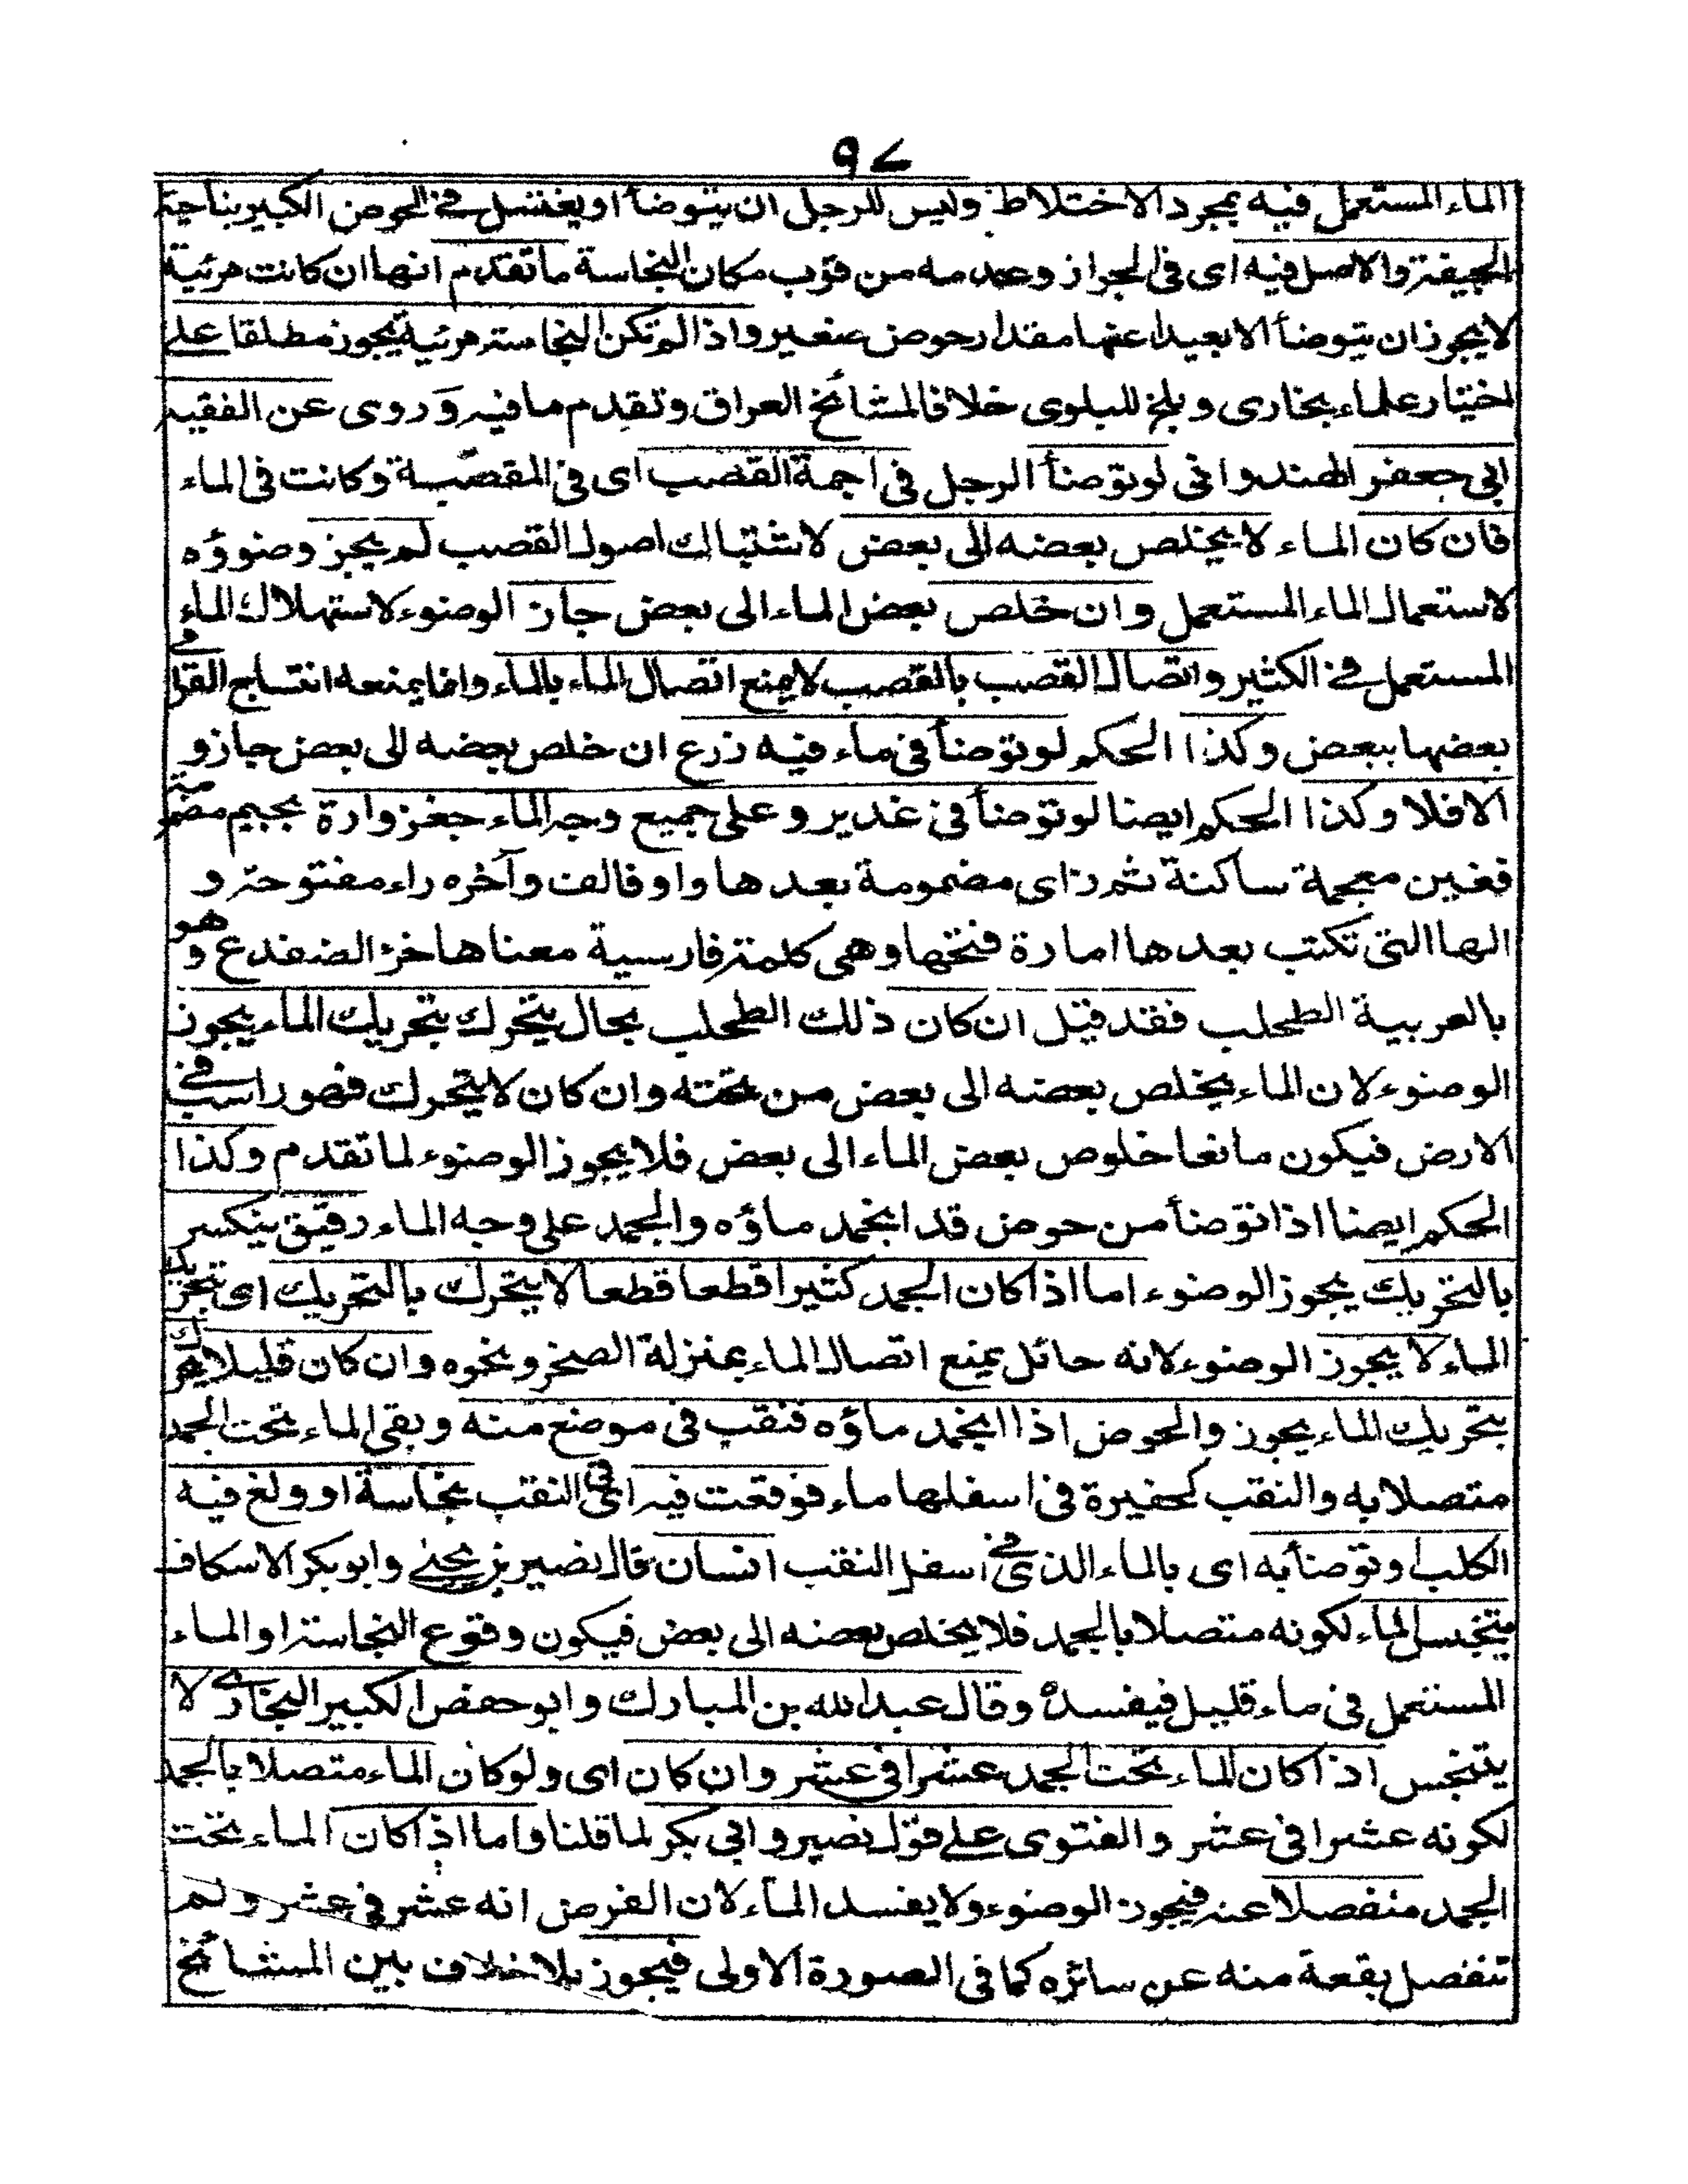 ٩٧
الماء المستعمل فيه بمجرد الاختلاط وليس للرجل ان يتوضأ او يغتسل في الحوض الكبير بناحية
الجيفة والاصل فيه اى فى الجواز وعدمه من قرب مكان النجاسة ما تقدم انها ان كانت مرئية
لا يجوز ان يتوضأ الا بعيدا عنها مقدار حوض صغير واذا لم تكن النجاسة مرئية يجوز مطلقا على
اختيار علماء بخارى و بلخ للبلوى خلافا لمشائخ العراق وتقدم ما فيه وروى عن الفقيه
ابى جعفر الهندوانى لو توضأ الرجل فى اجمة القصب اى فى المقصبة وكانت فى الماء
فان كان الماء لا يخلص بعضه الى بعض لاشتباك اصول القصب لم يجز وضوؤه
لاستعمال الماء المستعمل وان خلص بعض الماء الى بعض جاز الوضوء لاستهلاك الماء
المستعمل في الكثير واتصال القصب بالقصب لا يمنع اتصال الماء بالماء وانما يمنعه انتساج القرا فى
بعضها ببعض وكذا الحكم لو توضأ فى ماء فيه زرع ان خلص بعضه الى بعض جاز و
الا فلا وكذا الحكم ايضا لو توضأ فى غدير و على جميع وجه الماء جغزوارة بجيم مضمومة
فغين معجمة ساكنة ثم زاى مضمومة بعدها واو فالف وآخره راء مفتوحة و
الها التى تكتب بعدها امارة فتحها وهى كلمة فارسية معناها خرء الضفدع وهو
بالعربية الطحلب فقد قيل ان كان ذلك الطحلب بحال يتحرك بتحريك الماء يجوز
الوضوء لان الماء يخلص بعضه الى بعض من تحته وان كان لا يتحرك فهو راسب في
الارض فيكون مانعا خلوص بعض الماء الى بعض فلا يجوز الوضوء لما تقدم وكذا
الحكم ايضا اذا توضأ من حوض قد انجمد ماؤه والجمد على وجه الماء رقيق ينكسر
بالتحريك يجوز الوضوء اما اذا كان الجمد كثيرا قطعا قطعا لا يتحرك بالتحريك اى بتحريك
الماء لا يجوز الوضوء لانه حائل يمنع اتصال الماء بمنزلة الصخر ونحوه وان كان قليلا يتحرك
بتحريك الماء يجوز والحوض اذا انجمد ماؤه فنقب فى موضع منه وبقى الماء تحت الجمد
متصلا به والنقب كحفيرة فى اسفلها ماء فوقعت فيه اى فى النقب نجاسة او ولغ فيه
الكلب او توضأ به اى بالماء الذى في اسفل النقب انسان قال نصير بن يحيى وابو بكر الاسكاف
يتنجس الماء لكونه متصلا بالجمد فلا يخلص بعضه الى بعض فيكون وقوع النجاسة او الماء
المستعمل فى ماء قليل فيفسده وقال عبد الله بن المبارك وابو حفص الكبير البخارى لا
يتنجس اذا كان الماء تحت الجمد عشرا فى عشر وان كان اى ولو كان الماء متصلا بالجمد
لكونه عشرا فى عشر والفتوى على قول نصير وابى بكر لما قلنا واما اذا كان الماء تحت
الجمد منفصلا عنه فيجوز الوضوء ولا يفسد الماء لان الفرض انه عشر في عشر ولم
تنفصل بقعة منه عن سائره كما فى الصورة الاولى فيجوز بلا خلاف بين المشائخ